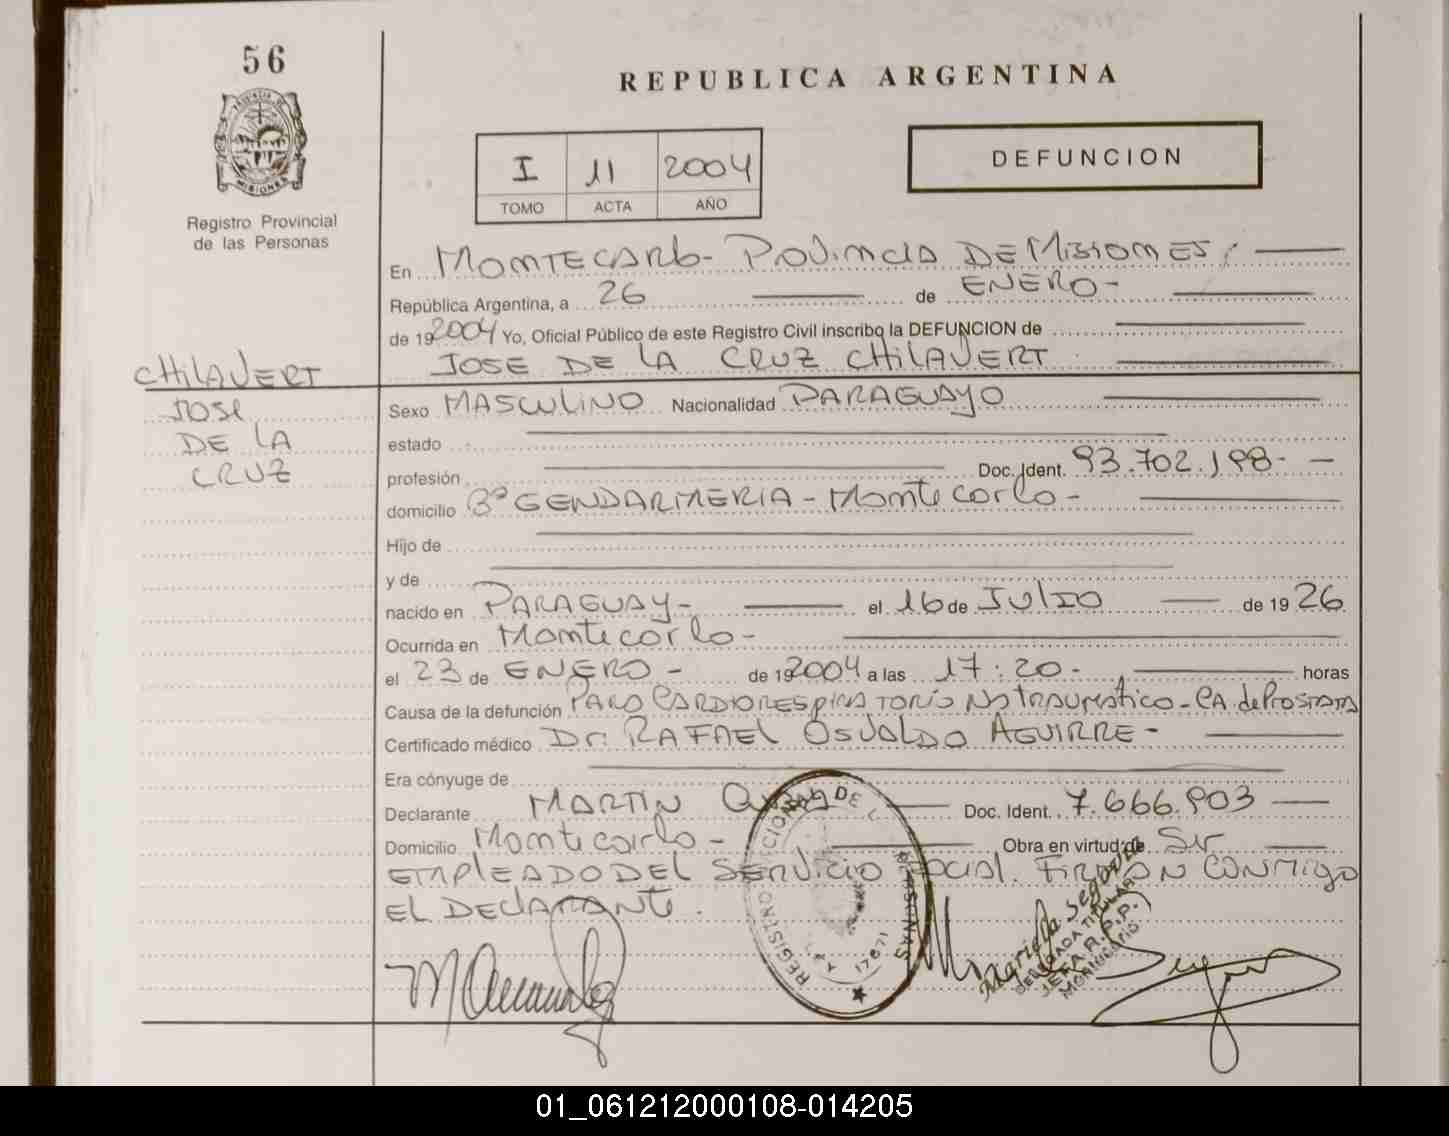 56
REPUBLICA ARGENTINA
PROVINCIA DE
MISIONES
I 11 2004
TOMO ACTA AÑO
DEFUNCION
Registro Provincial
de las Personas
En MONTECARLO - PROVINCIA DE MISIONES,
República Argentina, a 26 de ENERO -
de 19 2004 Yo, Oficial Público de este Registro Civil inscribo la DEFUNCION de
JOSE DE LA CRUZ CHILAVERT
CHILAVERT
JOSE
DE LA
CRUZ
Sexo MASCULINO Nacionalidad PARAGUAYO
estado
profesión Doc. Ident. 93.702.198 -
domicilio Bº GENDARMERIA - Montecarlo -
Hijo de
y de
nacido en PARAGUAY - el 16 de JULIO de 19 26
Ocurrida en Montecarlo -
el 23 de ENERO - de 19 2004 a las 17:20 - horas
Causa de la defunción PARO CARDIORESPIRATORIO NO TRAUMATICO - CA. de PROSTATA
Certificado médico Dr. RAFAEL OSVALDO AGUIRRE -
Era cónyuge de
Declarante MARTIN Doc. Ident. 7.666.903
Domicilio Montecarlo - Obra en virtud de Ser
EMPLEADO DEL SERVICIO Social. FIRMAN CONMIGO
EL DECLARANTE.
REGISTRO
17671
Mariela Segovia
DELEGADA TITULAR
J.E.F.A. R.P.P.
Montecarlo
01_061212000108-014205